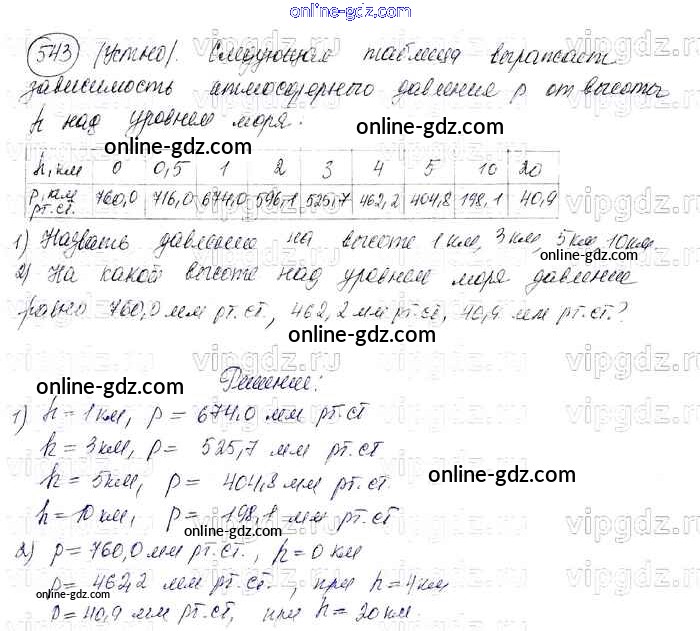 online-gdz.com
543 (Устно). Следующая таблица выражает
зависимость атмосферного давление p от высоты
h над уровнем моря:
online-gdz.com
h, км 0 0,5 1 2 3 4 5 10 20
p, км рт.ст. 760,0 716,0 674,0 596,1 525,7 462,2 404,8 198,1 40,9
1) Назвать давление на высоте 1 км, 3 км, 5 км, 10 км.
online-gdz.com
2) На какой высоте над уровнем моря давление
равно 760,0 мм рт.ст., 462,2 мм рт.ст, 40,9 мм рт.ст.?
online-gdz.com
vipgdz.ru
Решение:
online-gdz.com
1) h = 1 км, p = 674,0 мм рт.ст
h = 3 км, p = 525,7 мм рт.ст
h = 5 км, p = 404,8 мм рт.ст.
online-gdz.com
h = 10 км, p = 198,1 мм рт.ст.
online-gdz.com
2) p = 760,0 мм рт.ст., h = 0 км
p = 462,2 мм рт.ст., при h = 4 км
online-gdz.com
p = 40,9 мм рт.ст, при h = 20 км.
online-gdz.com